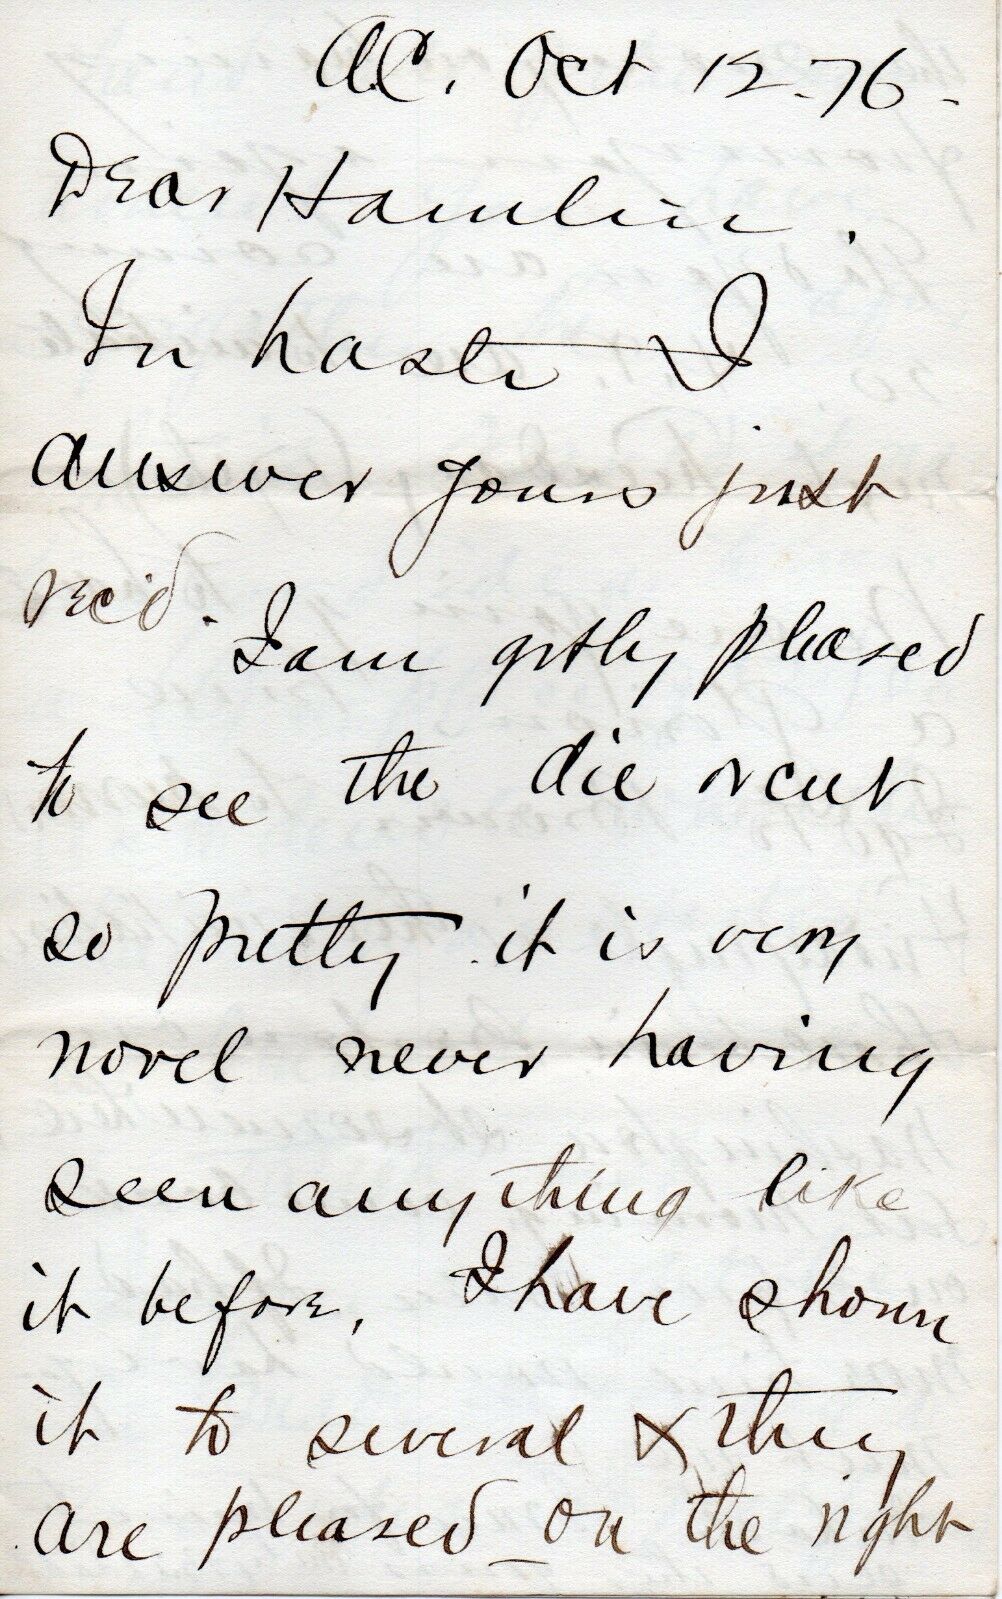 A.C. Oct 12-76-
Dear Hamlin.
In haste I
answer yours just
rec'd. I am grtly pleased
to see the die rcut
so pretty it is very
novel never having
seen anything like
it before, I have shown
it to several & they
are pleased - on the right